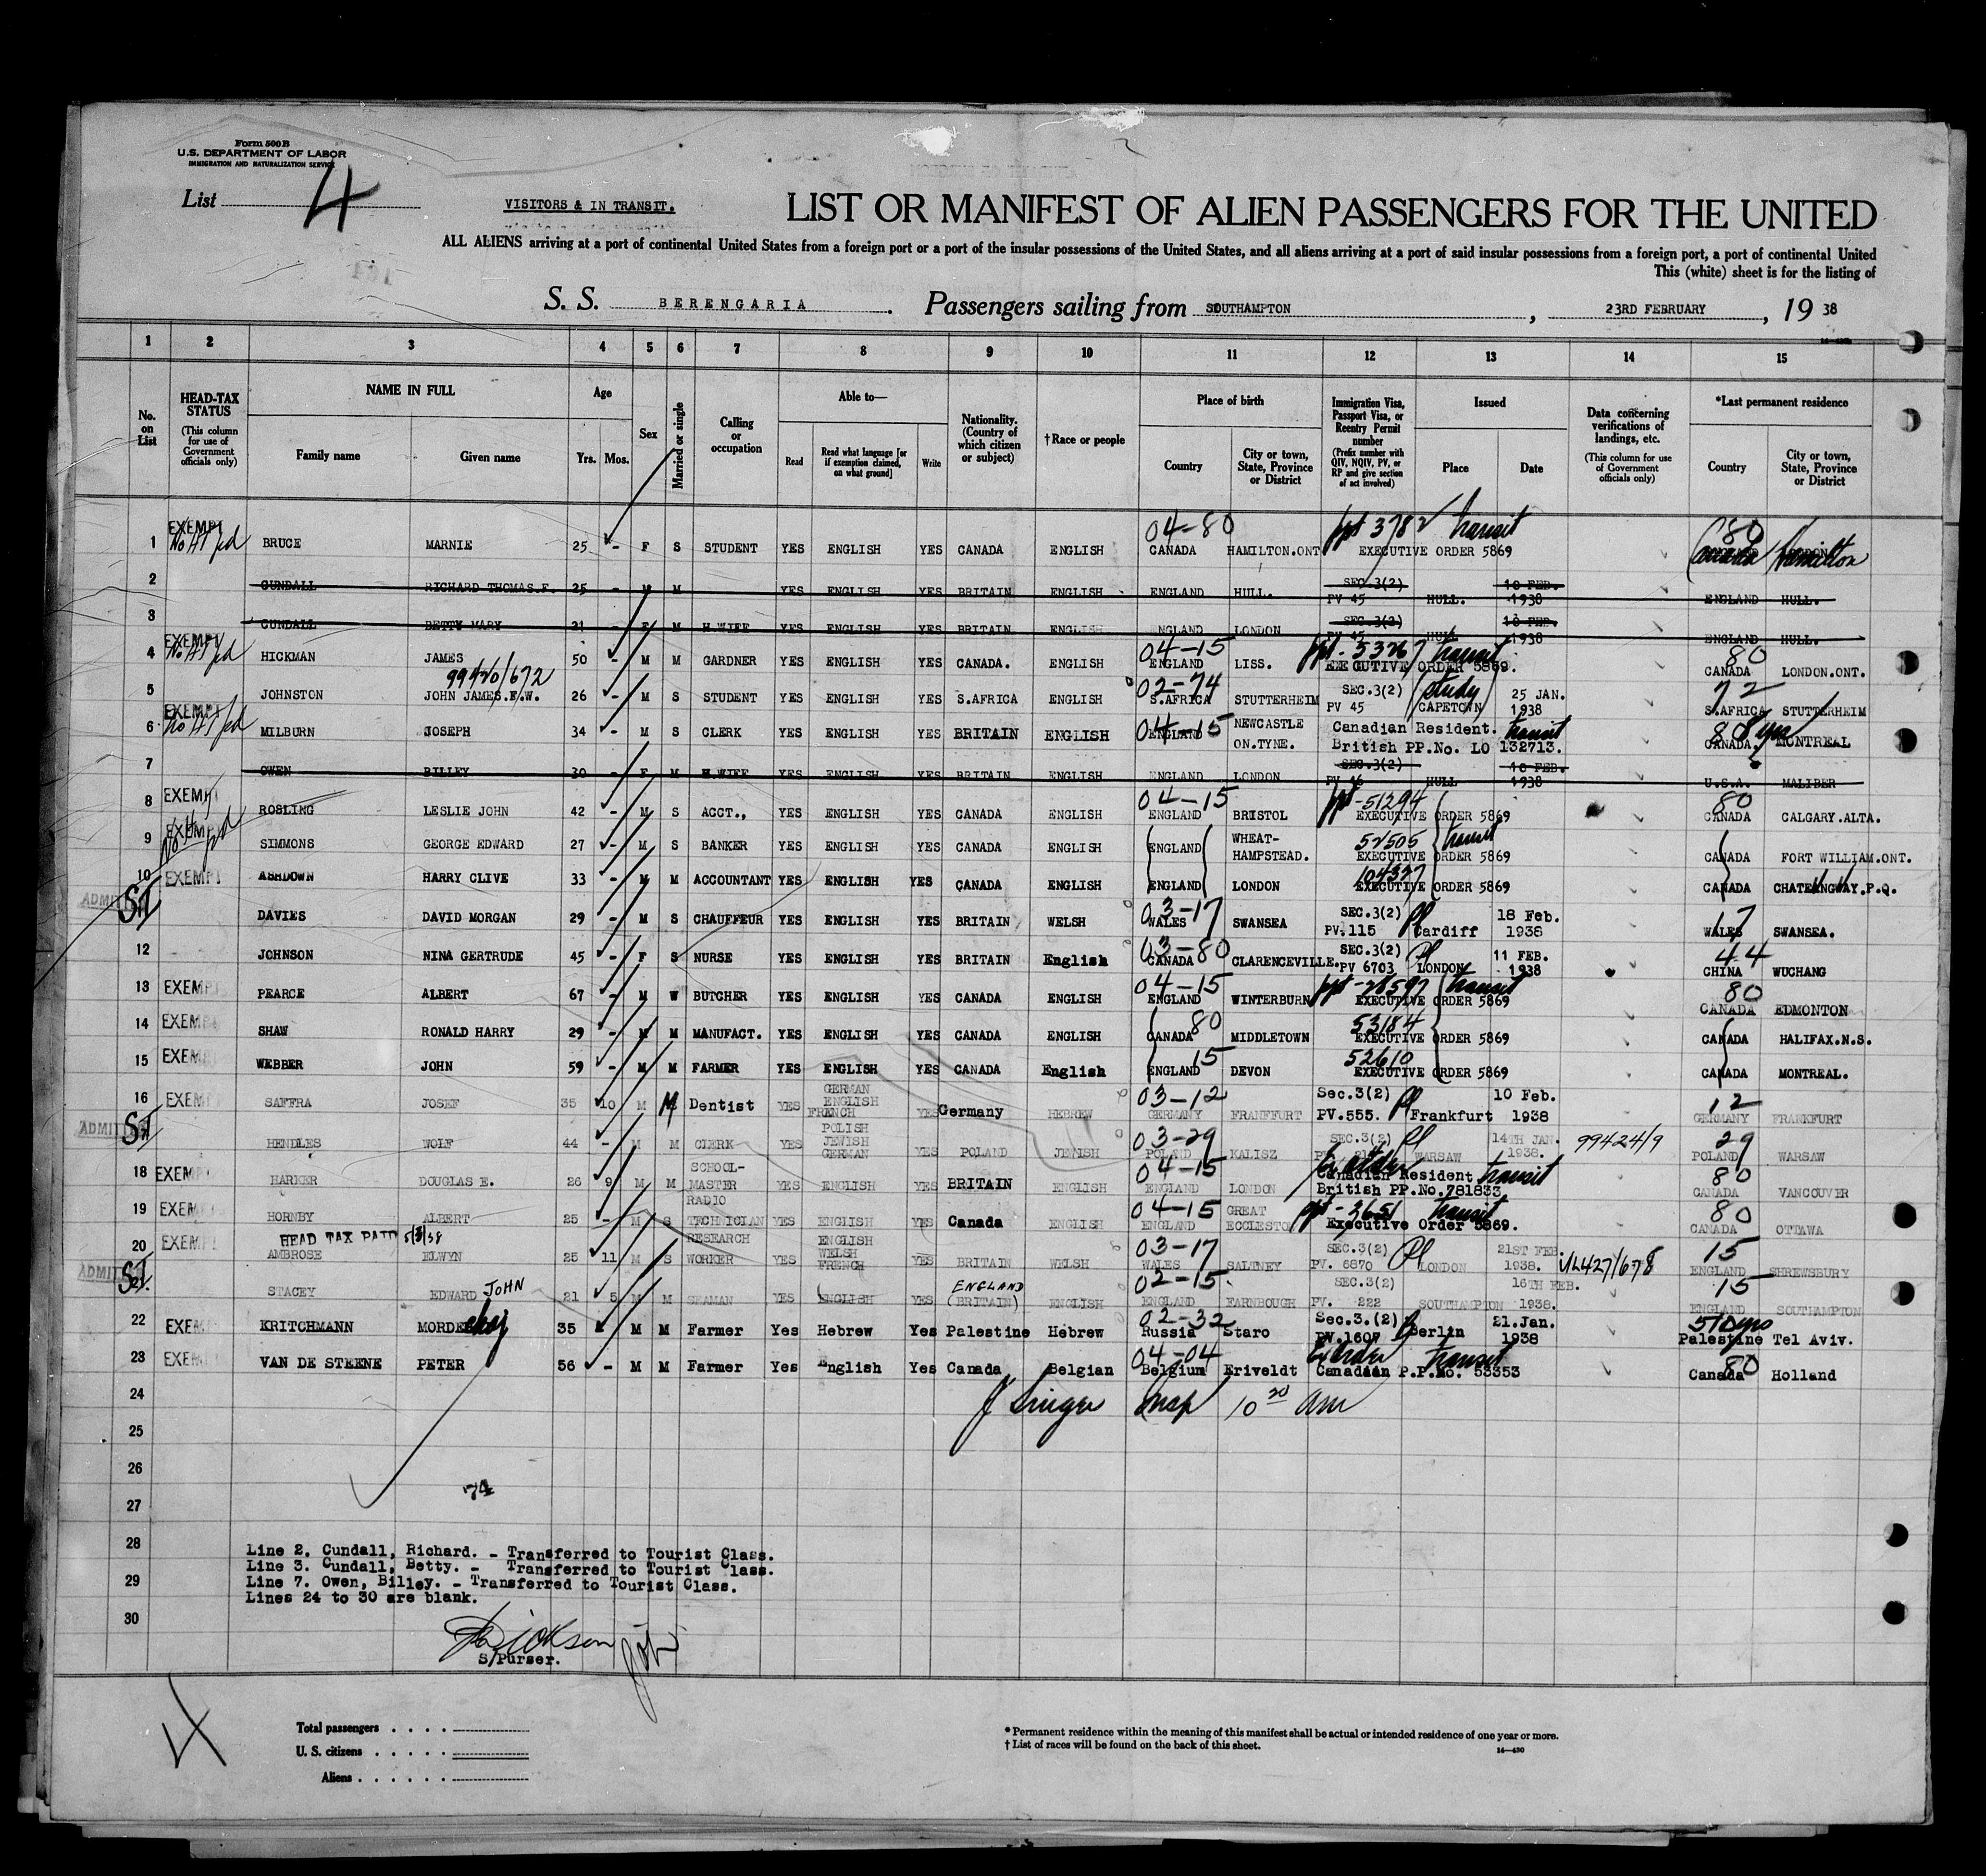 Form 500B
U.S. DEPARTMENT OF LABOR
IMMIGRATION AND NATURALIZATION SERVICE
List 4
VISITORS & IN TRANSIT.
LIST OR MANIFEST OF ALIEN PASSENGERS FOR THE UNITED
ALL ALIENS arriving at a port of continental United States from a foreign port or a port of the insular possessions of the United States, and all aliens arriving at a port of said insular possessions from a foreign port, a port of continental United
This (white) sheet is for the listing of
S. S. BERENGARIA. Passengers sailing from SOUTHAMPTON, 23RD FEBRUARY, 19 38
1 2 3 4 5 6 7 8 9 10 11 12 13 14 15
No. on List
HEAD-TAX STATUS (This column for use of Government officials only)
NAME IN FULL
Family name Given name
Age
Yrs. Mos.
Sex
Married or single
Calling or occupation
Able to—
Read Read what language [or if exemption claimed, on what ground] Write
Nationality. (Country of which citizen or subject)
†Race or people
Place of birth
Country City or town, State, Province or District
Immigration Visa, Passport Visa, or Reentry Permit number (Prefix number with QIV, NQIV, PV, or RP and give section of act involved)
Issued
Place Date
Data concerning verifications of landings, etc. (This column for use of Government officials only)
*Last permanent residence
Country City or town, State, Province or District
04-80 ppt 3782 transit 80
1 EXEMPT No HT pd BRUCE MARNIE 25 - F S STUDENT YES ENGLISH YES CANADA ENGLISH CANADA HAMILTON.ONT EXECUTIVE ORDER 5869 Canada Hamilton
2 CUNDALL RICHARD THOMAS.F. 25 - M M YES ENGLISH YES BRITAIN ENGLISH ENGLAND HULL. SEC.3(2) PV 45 HULL. 10 FEB. 1938 ENGLAND HULL.
3 CUNDALL BETTY MARY 21 - F M H.WIFE YES ENGLISH YES BRITAIN ENGLISH ENGLAND LONDON SEC.3(2) PV 45 HULL 10 FEB. 1938 ENGLAND HULL.
04-15 transit 80
4 EXEMPT No HT pd HICKMAN JAMES 50 - M M GARDNER YES ENGLISH YES CANADA. ENGLISH ENGLAND LISS. EXECUTIVE ORDER 5869. CANADA LONDON.ONT.
99420/672 02-74 study 72
5 JOHNSTON JOHN JAMES.F.W. 26 - M S STUDENT YES ENGLISH YES S.AFRICA ENGLISH S.AFRICA STUTTERHEIM SEC.3(2) PV 45 CAPETOWN 25 JAN. 1938 S.AFRICA STUTTERHEIM
6 EXEMPT No HT pd MILBURN JOSEPH 34 - M S CLERK YES ENGLISH YES BRITAIN ENGLISH 04-15 ENGLAND NEWCASTLE ON.TYNE. Canadian Resident. transit British PP.No. LO 132713. CANADA. MONTREAL
7 OWEN BILLEY 30 - F M H.WIFE YES ENGLISH YES BRITAIN ENGLISH ENGLAND LONDON SEC.3(2) PV 46 HULL 10 FEB. 1938 U.S.A. MALIBER
04-15 ppt-51294 80
8 EXEMPT ROSLING LESLIE JOHN 42 - M S ACCT., YES ENGLISH YES CANADA ENGLISH ENGLAND BRISTOL EXECUTIVE ORDER 5869 CANADA CALGARY.ALTA.
9 EXEMPT SIMMONS GEORGE EDWARD 27 - M S BANKER YES ENGLISH YES CANADA ENGLISH ENGLAND WHEAT-HAMPSTEAD. 52505 transit EXECUTIVE ORDER 5869 CANADA FORT WILLIAM.ONT.
10 EXEMPT ASHDOWN HARRY CLIVE 33 - M M ACCOUNTANT YES ENGLISH YES CANADA ENGLISH ENGLAND LONDON 104327 EXECUTIVE ORDER 5869 CANADA CHATEAUGWAY.P.Q.
ADMITTED SI DAVIES DAVID MORGAN 29 - M S CHAUFFEUR YES ENGLISH YES BRITAIN WELSH 03-17 WALES SWANSEA SEC.3(2) PV.115 Pl Cardiff 18 Feb. 1938 17 WALES SWANSEA.
12 JOHNSON NINA GERTRUDE 45 - F S NURSE YES ENGLISH YES BRITAIN English 03-80 CANADA CLARENCEVILLE. SEC.3(2) PV 6703 Pl LONDON 11 FEB. 1938 44 CHINA WUCHANG
13 EXEMPT PEARCE ALBERT 67 - M W BUTCHER YES ENGLISH YES CANADA ENGLISH 04-15 ENGLAND WINTERBURN transit EXECUTIVE ORDER 5869 80 CANADA EDMONTON
14 EXEMPT SHAW RONALD HARRY 29 - M M MANUFACT. YES ENGLISH YES CANADA ENGLISH 80 CANADA MIDDLETOWN 53184 EXECUTIVE ORDER 5869 CANADA HALIFAX.N.S.
15 EXEMPT WEBBER JOHN 59 - M M FARMER YES ENGLISH YES CANADA English 15 ENGLAND DEVON 52610 EXECUTIVE ORDER 5869 CANADA MONTREAL.
16 EXEMPT SAFFRA JOSEF 35 10 M M Dentist YES GERMAN ENGLISH FRENCH YES Germany HEBREW 03-12 GERMANY FRANFFURT Sec.3(2) PV.555. Pl Frankfurt 10 Feb. 1938 12 GERMANY FRANKFURT
ADMITTED SI HENDLES WOLF 44 - M M CLERK YES POLISH JEWISH GERMAN YES POLAND JEWISH 03-29 POLAND KALISZ SEC.3(2) Pl WARSAW 14TH JAN. 1938. 99424/9 29 POLAND WARSAW
18 EXEMPT HARKER DOUGLAS E. 26 9 M M SCHOOL-MASTER YES ENGLISH YES BRITAIN ENGLISH 04-15 ENGLAND LONDON Canadian Resident transit British PP.No.781833 80 CANADA VANCOUVER
19 EXEMPT HORNBY ALBERT 25 - M S RADIO TECHNICIAN YES ENGLISH YES Canada ENGLISH 04-15 ENGLAND GREAT ECCLESTON ppt-3651 transit Executive Order 5869. 80 CANADA OTTAWA
HEAD TAX PAID 5/3/38
20 EXEMPT AMBROSE ELWYN 25 11 M S RESEARCH WORKER YES ENGLISH WELSH FRENCH YES BRITAIN WELSH 03-17 WALES SALTNEY SEC.3(2) PV. 6870 Pl LONDON 21ST FEB 1938. 15 ENGLAND SHREWSBURY
ADMITTED SI 21. STACEY EDWARD JOHN 21 5 M M SEAMAN YES ENGLISH YES ENGLAND (BRITAIN) ENGLISH 02-15 ENGLAND FARNBOUGH SEC.3(2) PV. 222 SOUTHAMPTON 16TH FEB. 1938. 15 ENGLAND SOUTHAMPTON
22 EXEMPT KRITCHMANN MORDEchaj 35 M M Farmer Yes Hebrew Yes Palestine Hebrew 02-32 Russia Staro Sec.3.(2) PV.1607 Berlin 21.Jan. 1938 Palestine Tel Aviv.
23 EXEMPT VAN DE STEENE PETER 56 - M M Farmer Yes English Yes Canada Belgian 04-04 Belgium Eriveldt transit Canadian P.P.No. 53353 80 Canada Holland
24 J Singer Insp 10 20 am
25
26
27 74
28
Line 2. Cundall, Richard. - Transferred to Tourist Class.
Line 3. Cundall, Betty. - Transferred to Tourist Class.
29 Line 7. Owen, Billey. - Transferred to Tourist Class.
Lines 24 to 30 are blank.
30
Dickson
S/Purser.
Total passengers
U. S. citizens
Aliens
* Permanent residence within the meaning of this manifest shall be actual or intended residence of one year or more.
† List of races will be found on the back of this sheet.
14—430